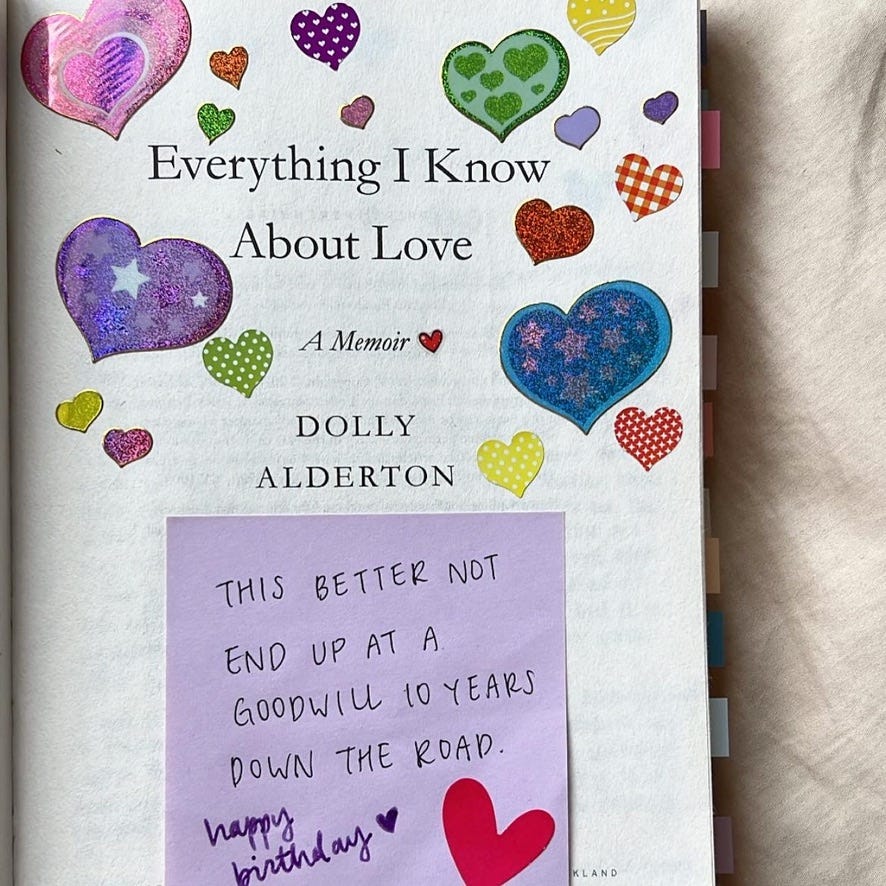 Everything I Know
About Love
A Memoir
DOLLY
ALDERTON
THIS BETTER NOT
END UP AT A
GOODWILL 10 YEARS
DOWN THE ROAD.
happy
birthday